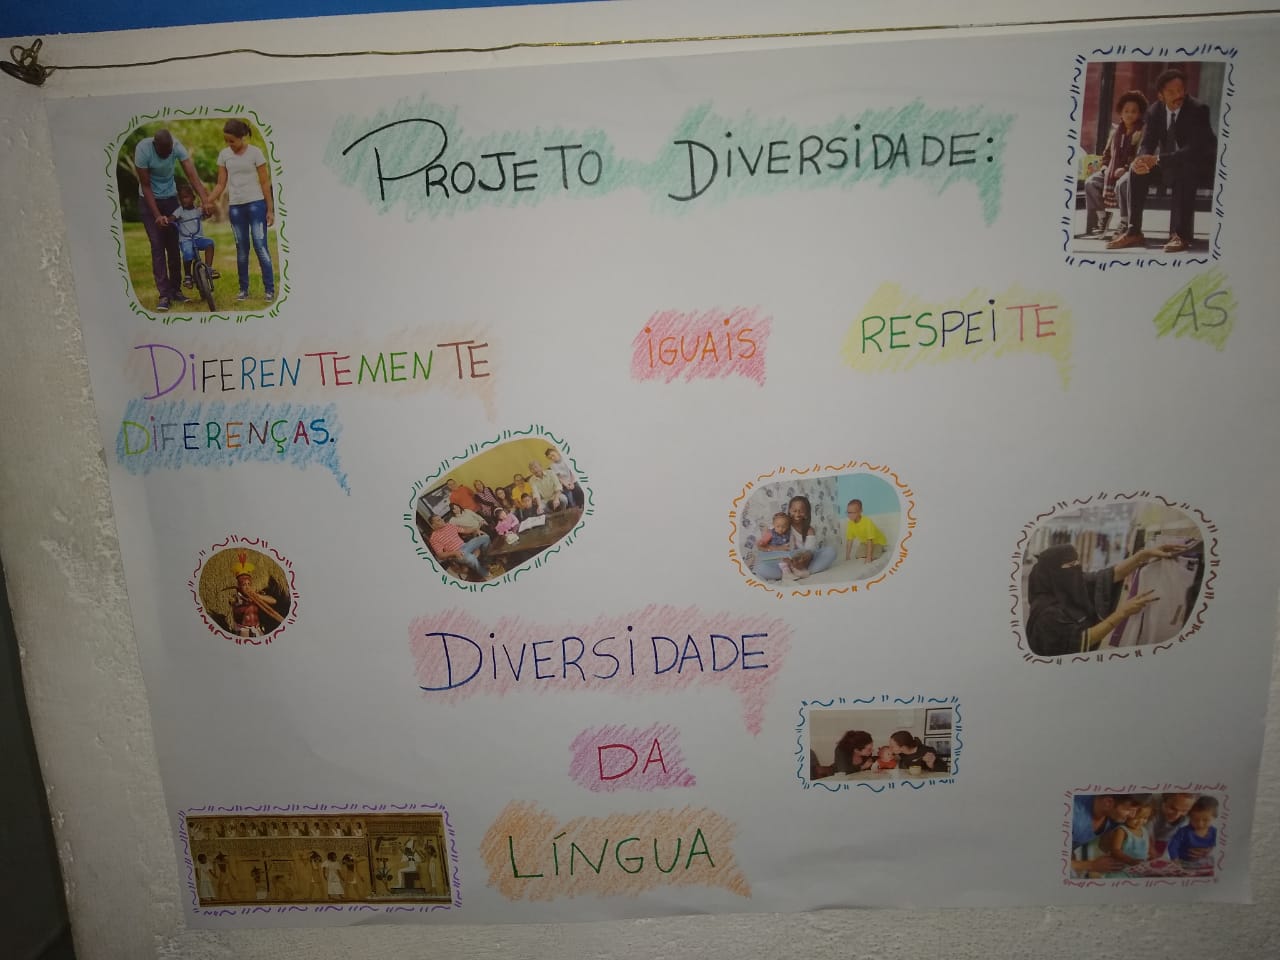 PROJETO DIVERSIDADE:
DIFERENTEMENTE IGUAIS RESPEITE AS
DIFERENÇAS.
DIVERSIDADE
DA
LÍNGUA